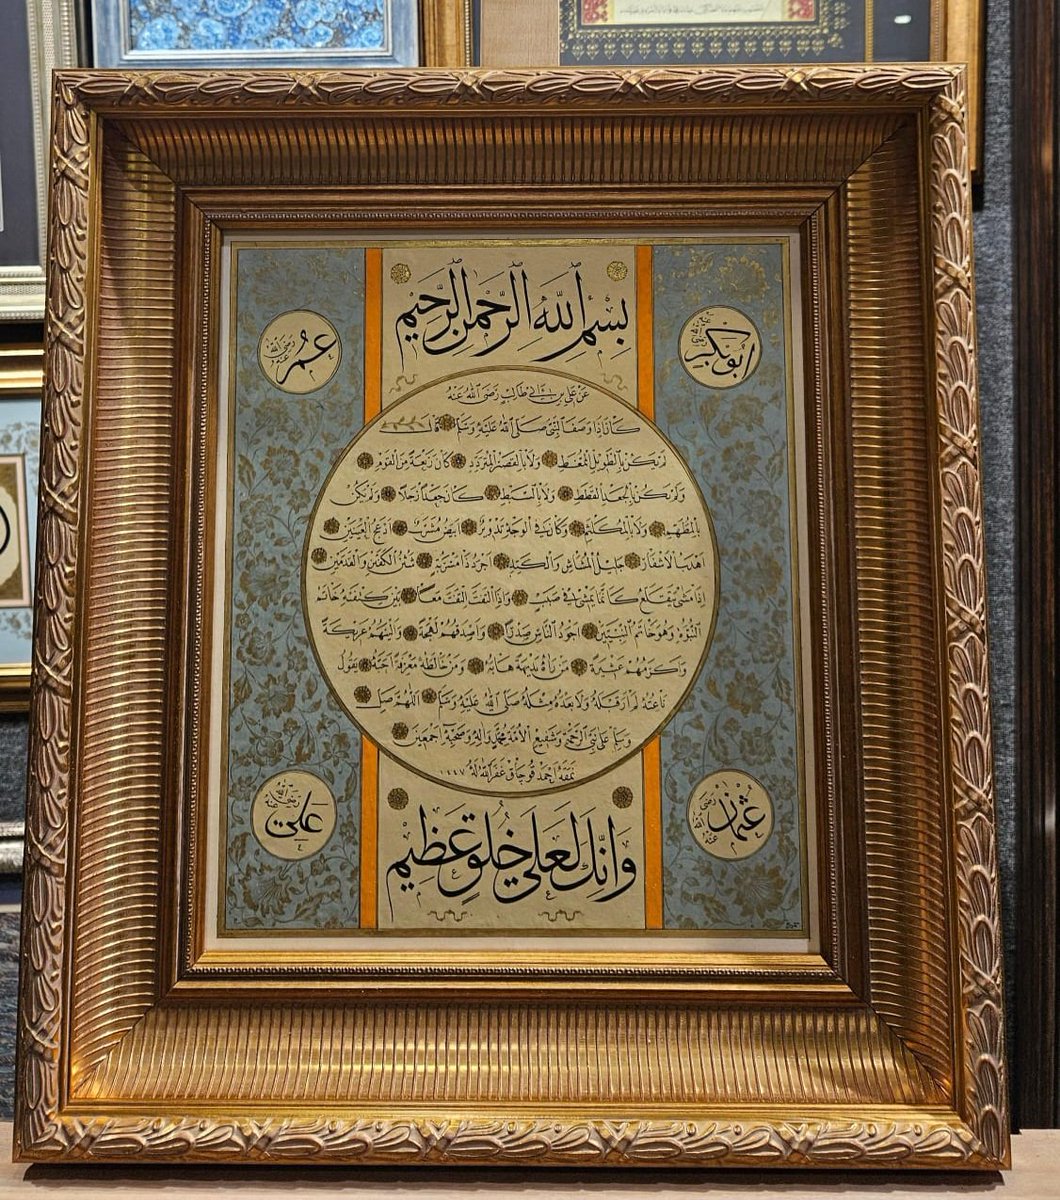 بِسْمِ اللهِ الرَّحْمٰنِ الرَّحِيمِ
أبو بكر رضي الله عنه
عمر رضي الله عنه
عَنْ عَلِيِّ بْنِ أَبِي طَالِبٍ رَضِيَ اللهُ عَنْهُ
كَانَ إِذَا وَصَفَ النَّبِيَّ صَلَّى اللهُ عَلَيْهِ وَسَلَّمَ قَالَ
لَمْ يَكُنْ بِالطَّوِيلِ الْمُمَّغِطِ وَلَا بِالْقَصِيرِ الْمُتَرَدِّدِ كَانَ رَبْعَةً مِنَ الْقَوْمِ
وَلَمْ يَكُنْ بِالْجَعْدِ الْقَطَطِ وَلَا بِالسَّبِطِ كَانَ جَعْدًا رَجِلًا وَلَمْ يَكُنْ
بِالْمُطَهَّمِ وَلَا بِالْمُكَلْثَمِ وَكَانَ فِي الْوَجْهِ تَدْوِيرٌ أَبْيَضُ مُشْرَبٌ أَدْعَجُ الْعَيْنَيْنِ
أَهْدَبُ الْأَشْفَارِ جَلِيلُ الْمُشَاشِ وَالْكَتَدِ أَجْرَدُ ذُو مَسْرُبَةٍ شَثْنُ الْكَفَّيْنِ وَالْقَدَمَيْنِ
إِذَا مَشَى يَتَقَلَّعُ كَأَنَّمَا يَمْشِي فِي صَبَبٍ وَإِذَا الْتَفَتَ الْتَفَتَ مَعًا بَيْنَ كَتِفَيْهِ خَاتَمُ
النُّبُوَّةِ وَهُوَ خَاتَمُ النَّبِيِّينَ أَجْوَدُ النَّاسِ صَدْرًا وَأَصْدَقُهُمْ لَهْجَةً وَأَلْيَنُهُمْ عَرِيكَةً
وَأَكْرَمُهُمْ عَشِيرَةً مَنْ رَآهُ بَدِيهَةً هَابَهُ وَمَنْ خَالَطَهُ مَعْرِفَةً أَحَبَّهُ يَقُولُ
نَاعِتُهُ لَمْ أَرَ قَبْلَهُ وَلَا بَعْدَهُ مِثْلَهُ صَلَّى اللهُ عَلَيْهِ وَسَلَّمَ اللّٰهُمَّ صَلِّ
وَسَلِّمْ عَلَى نَبِيِّ الرَّحْمَةِ وَشَفِيعِ الْأُمَّةِ مُحَمَّدٍ وَآلِهِ وَصَحْبِهِ أَجْمَعِينَ
نمقه أحمد قوجاق غفر الله له ١٤٤٧
عثمان رضي الله عنه
علي رضي الله عنه
وَإِنَّكَ لَعَلَى خُلُقٍ عَظِيمٍ